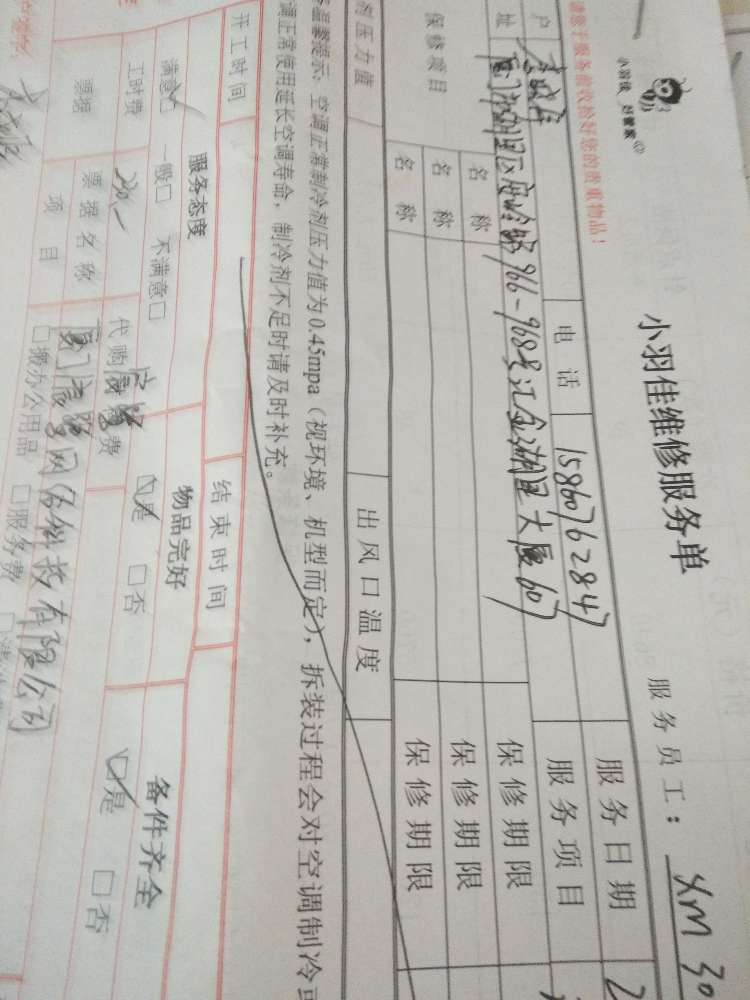 小羽佳 好管家
小羽佳维修服务单
服务员工：XM 30
请您于服务前收拾好您的贵重物品！
户
电话 15860762847
服务日期
址 厦门市湖里区 966-968号汇金湖里大厦607
服务项目
保修项目
名称
保修期限
名称
保修期限
名称
保修期限
剂压力值
出风口温度
温馨提示：空调正常制冷剂压力值为0.45mpa（视环境、机型而定），拆装过程会对空调制冷
调正常使用延长空调寿命，制冷剂不足时请及时补充。
开工时间
结束时间
服务态度
物品完好
备件齐全
满意□ 一般□ 不满意□
□是 □否
□是 □否
工时费
代购 费
票据
票据名称
厦门 网络科技有限公司
项目
□搬办公用品 □服务费